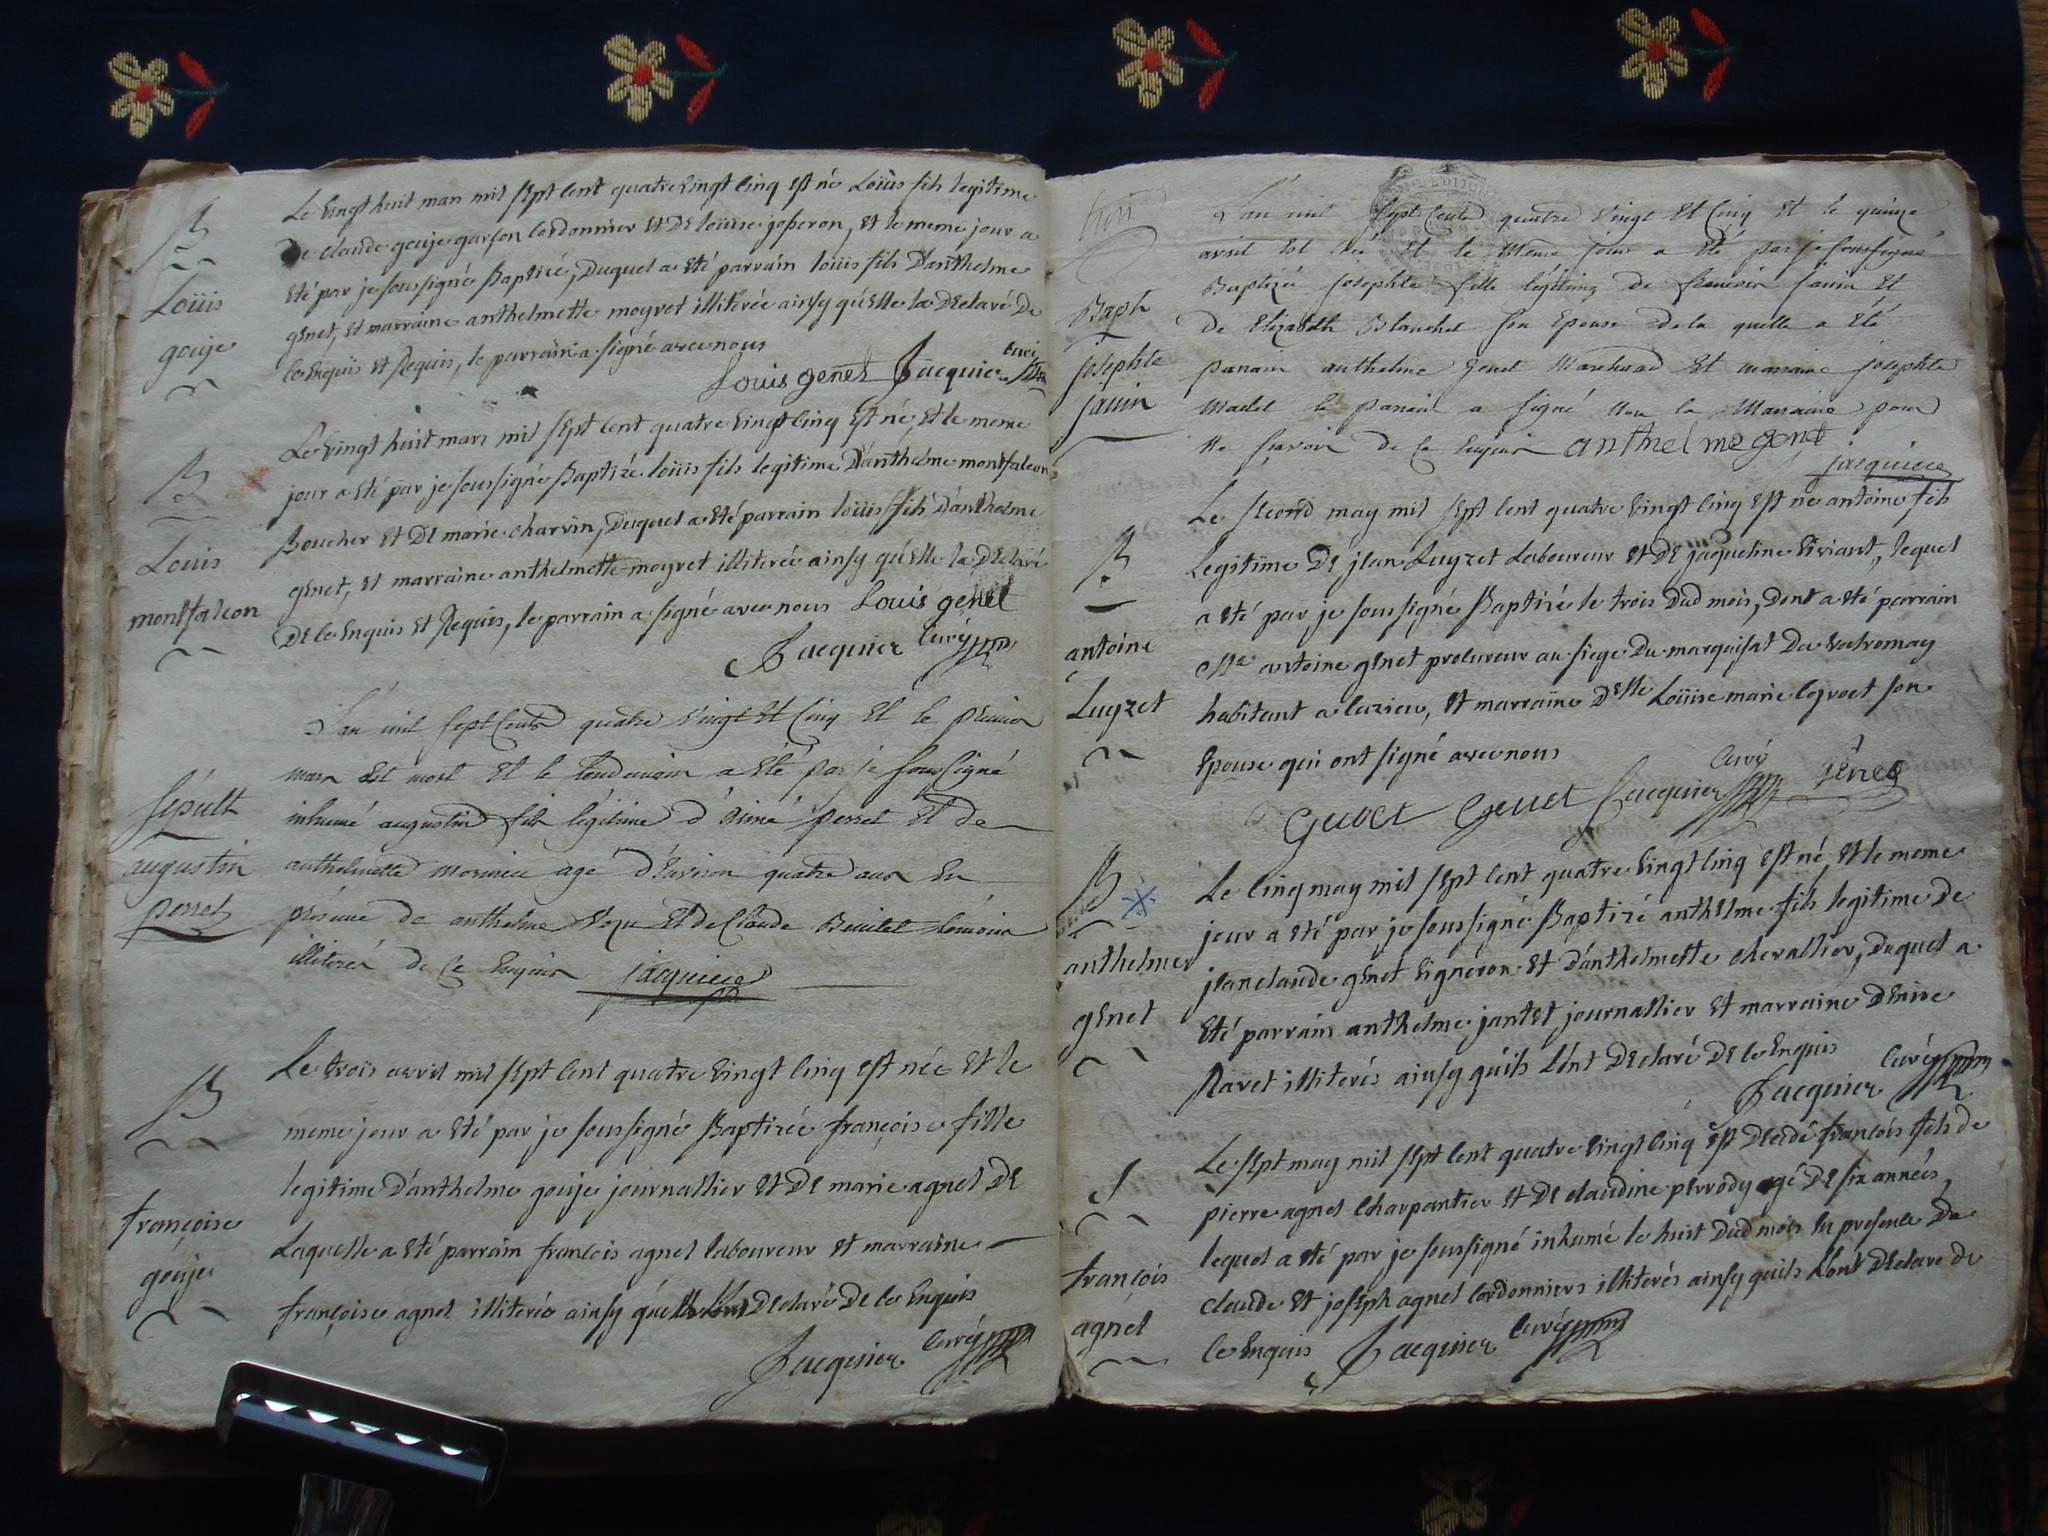 B
Loüis
gouje
Le vingt huit mars mil sept cent quatre vingt cinq est né Loüis fils legitime
de claude gouje garçon cordonnier et de loüise josseron, et le meme jour a
eté par je soussigné Baptizé, duquel a eté parrain loüis fils d'anthelme
genet, et marraine anthelmette moyret illiterée ainsy qu'elle la declaré de
ce enquis et Requis, le parrain a signé avec nous
Louis genet Jacquier curé
B
Louis
montfalcon
Le vingt huit mars mil sept cent quatre vingt cinq est né, et le meme
jour a eté par je soussigné Baptizé loüis fils legitime d'anthelme montfalcon
Boucher et de marie charvin, duquel a eté parrain loüis fils d'anthelme
genet, et marraine anthelmette moyret illiterée ainsy qu'elle la declaré
de ce enquis et Requis, le parrain a signé avec nous Louis genet
Jacquier curé
sépult
augustin
perret
L'an mil sept Cents quatre vingt et Cinq et le premier
mars est mort et le lendemain a été par je soussigné
inhumé augustin fils légitime d'aimé perret et de
anthelmette mornieu agé d'environ quatre ans en
présence de anthelme et de Claude témoins
illiterés de Ce Enquis jacquier
B
françoise
gouje
Le trois avril mil sept cent quatre vingt cinq est née et le
meme jour a eté par je soussigné Baptizée françoise fille
legitime d'anthelme gouje journallier et de marie agnel de
Laquelle a eté parrain francois agnel laboureur et marraine
françoise agnel illiterés ainsy declaré de ce enquis
Jacquier curé
Bapt
josephte
jauin
L'an mil sept Cents quatre vingt et Cinq et le quinze
avril est née et le même jour a été par je soussigné
Baptizée josephte fille légitime de francois jauin et
de Elizabeth Blanchet son Epouse de la quelle a été
parain anthelme genet Marchand et maraine josephte
le parain a signé non la Maraine pour
ne savoir de Ce Enquis anthelme genet
jacquier
B
antoine
Luyzet
Le second may mil sept cent quatre vingt cinq est né antoine fils
legitime de jean Luyzet Laboureur et de jaqueline viviant, lequel
a eté par je soussigné Baptizé le trois dud mois, dont a eté parrain
Me antoine genet procureur au siege du marquisat du valromay
habitant a luzieu, et marraine delle Loüise marie son
Epouse qui ont signé avec nous
Genet Jacquier curé genet
B
anthelme
genet
Le cinq may mil sept cent quatre vingt cinq est né, et le meme
jour a eté par je soussigné Baptizé anthelme fils legitime de
jean claude genet vigneron et d'anthelmette chevallier, duquel a
eté parrain anthelme jantet journallier et marraine denise
Ravet illiterés ainsy qu'ils l'ont declaré de ce enquis
Jacquier curé
S
françois
agnel
Le sept may mil sept cent quatre vingt cinq est decedé françois fils de
pierre agnel charpantier et de claudine perrody agé de six années,
lequel a eté par je soussigné inhumé le huit dud mois en presence de
claude et joseph agnel cordonniers illiterés ainsy qu'ils l'ont declaré de
ce enquis Jacquier curé